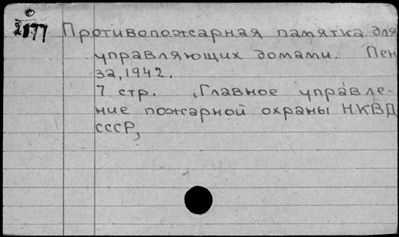 Противопожарная памятка для
управляющих домами. Пен
за, 1942.
7 стр. „Главное управле-
ние пожарной охраны НКВД
СССР,